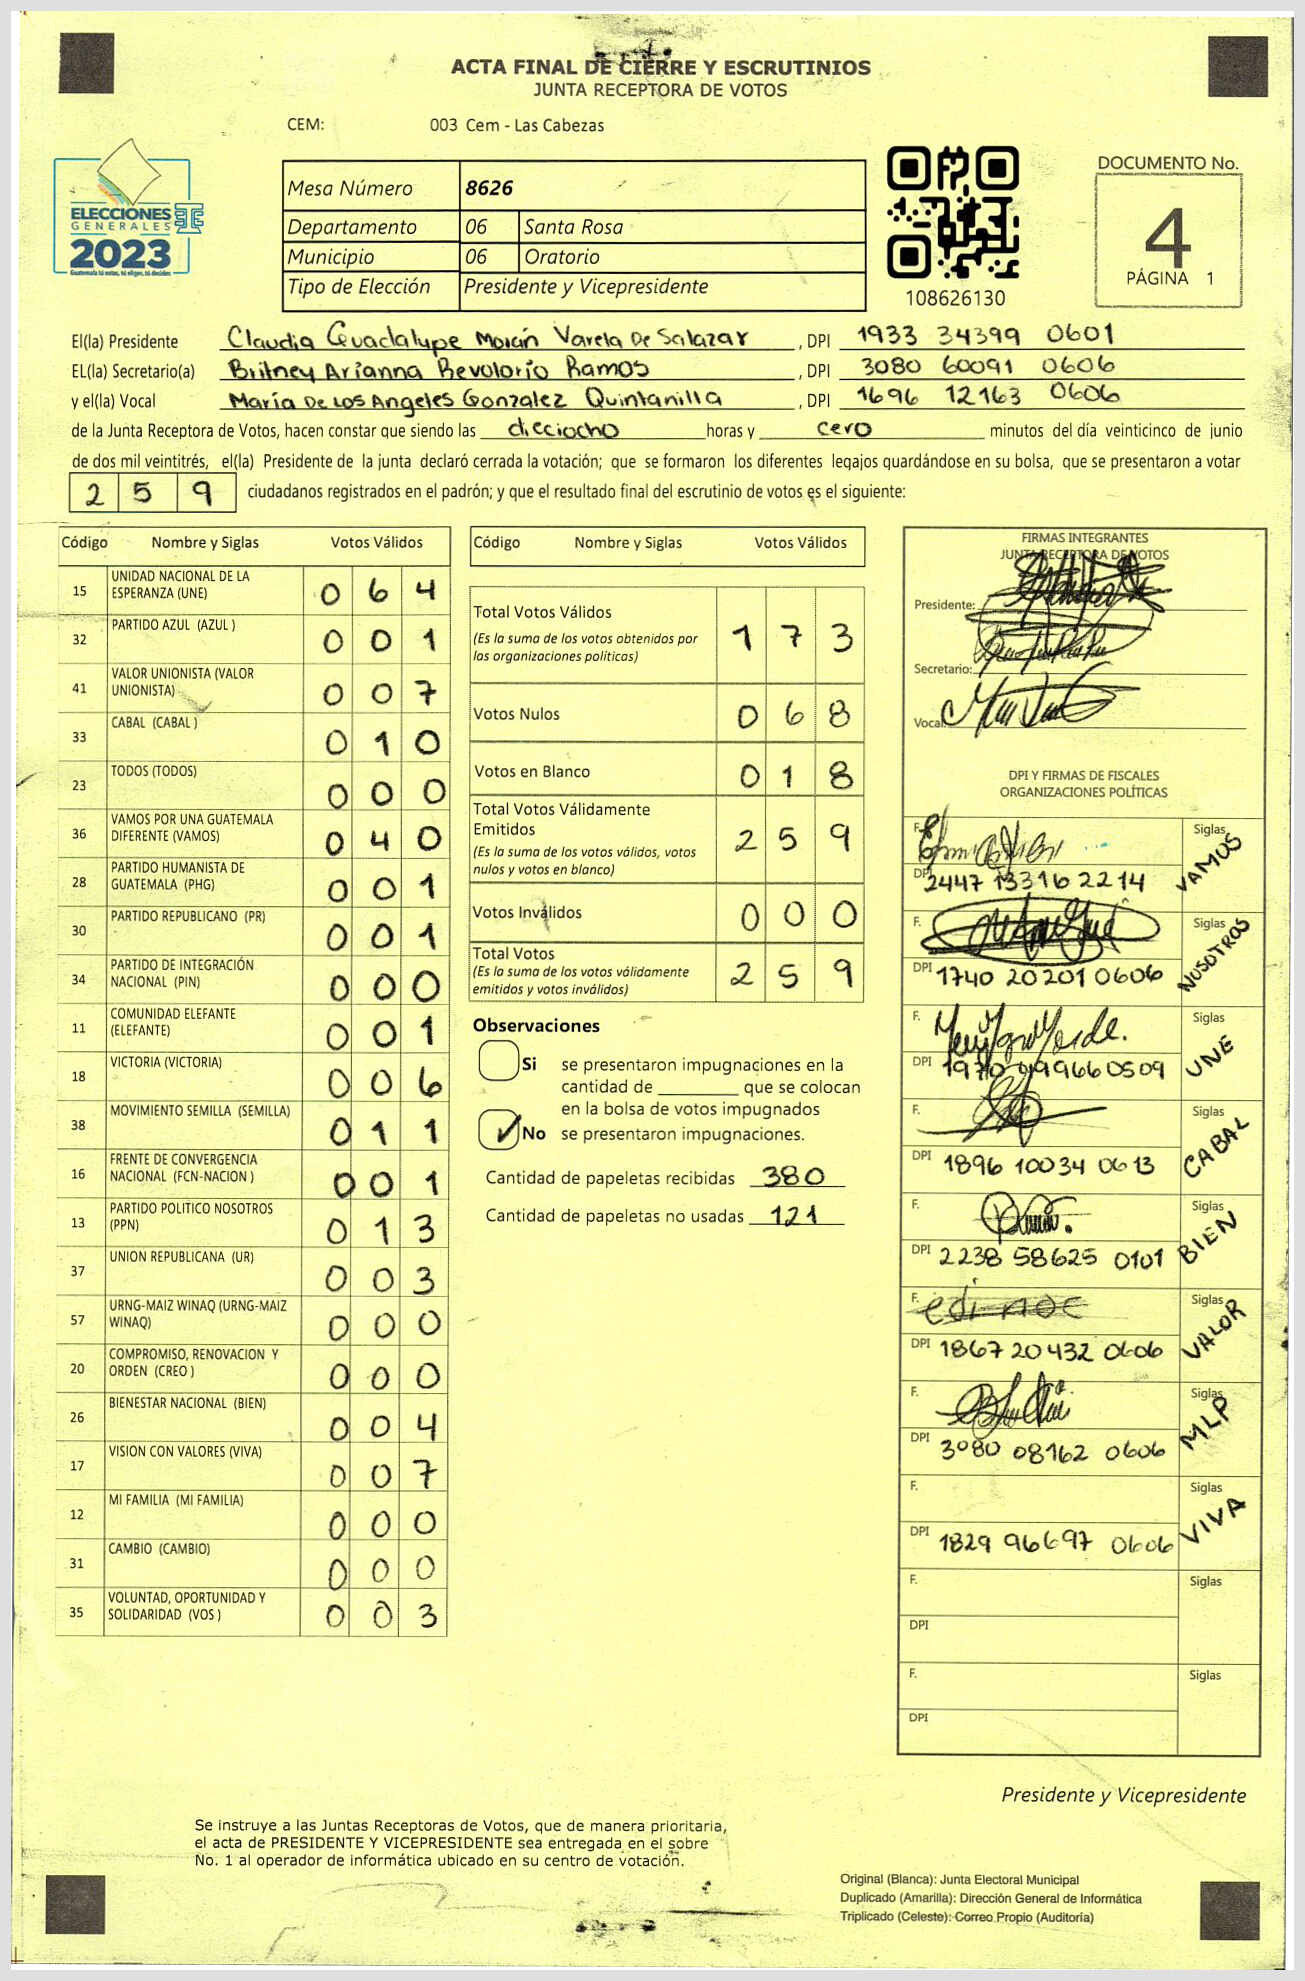 ACTA FINAL DE CIERRE Y ESCRUTINIOS
JUNTA RECEPTORA DE VOTOS
CEM: 003 Cem - Las Cabezas
ELECCIONES
GENERALES
2023
Guatemala tú votas, tú eliges, tú decides
Mesa Número 8626
Departamento 06 Santa Rosa
Municipio 06 Oratorio
Tipo de Elección Presidente y Vicepresidente
108626130
DOCUMENTO No.
4
PÁGINA 1
El(la) Presidente Claudia Guadalupe Morán Varela De Salazar , DPI 1933 34399 0601
EL(la) Secretario(a) Britney Arianna Revolorio Ramos , DPI 3080 60091 0606
y el(la) Vocal María De Los Angeles Gonzalez Quintanilla , DPI 1696 12163 0606
de la Junta Receptora de Votos, hacen constar que siendo las dieciocho horas y cero minutos del día veinticinco de junio
de dos mil veintitrés, el(la) Presidente de la junta declaró cerrada la votación; que se formaron los diferentes legajos guardándose en su bolsa, que se presentaron a votar
2 5 9 ciudadanos registrados en el padrón; y que el resultado final del escrutinio de votos es el siguiente:
Código Nombre y Siglas Votos Válidos
15 UNIDAD NACIONAL DE LA ESPERANZA (UNE) 0 6 4
32 PARTIDO AZUL (AZUL ) 0 0 1
41 VALOR UNIONISTA (VALOR UNIONISTA) 0 0 7
33 CABAL (CABAL ) 0 1 0
23 TODOS (TODOS) 0 0 0
36 VAMOS POR UNA GUATEMALA DIFERENTE (VAMOS) 0 4 0
28 PARTIDO HUMANISTA DE GUATEMALA (PHG) 0 0 1
30 PARTIDO REPUBLICANO (PR) 0 0 1
34 PARTIDO DE INTEGRACIÓN NACIONAL (PIN) 0 0 0
11 COMUNIDAD ELEFANTE (ELEFANTE) 0 0 1
18 VICTORIA (VICTORIA) 0 0 6
38 MOVIMIENTO SEMILLA (SEMILLA) 0 1 1
16 FRENTE DE CONVERGENCIA NACIONAL (FCN-NACION ) 0 0 1
13 PARTIDO POLITICO NOSOTROS (PPN) 0 1 3
37 UNION REPUBLICANA (UR) 0 0 3
57 URNG-MAIZ WINAQ (URNG-MAIZ WINAQ) 0 0 0
20 COMPROMISO, RENOVACION Y ORDEN (CREO ) 0 0 0
26 BIENESTAR NACIONAL (BIEN) 0 0 4
17 VISION CON VALORES (VIVA) 0 0 7
12 MI FAMILIA (MI FAMILIA) 0 0 0
31 CAMBIO (CAMBIO) 0 0 0
35 VOLUNTAD, OPORTUNIDAD Y SOLIDARIDAD (VOS ) 0 0 3
Código Nombre y Siglas Votos Válidos
Total Votos Válidos 1 7 3
(Es la suma de los votos obtenidos por
las organizaciones políticas)
Votos Nulos 0 6 8
Votos en Blanco 0 1 8
Total Votos Válidamente
Emitidos 2 5 9
(Es la suma de los votos válidos, votos
nulos y votos en blanco)
Votos Inválidos 0 0 0
Total Votos 2 5 9
(Es la suma de los votos válidamente
emitidos y votos inválidos)
Observaciones
Si se presentaron impugnaciones en la
cantidad de ________ que se colocan
en la bolsa de votos impugnados
✓ No se presentaron impugnaciones.
Cantidad de papeletas recibidas 380
Cantidad de papeletas no usadas 121
FIRMAS INTEGRANTES
JUNTA RECEPTORA DE VOTOS
Presidente:
Secretario:
Vocal:
DPI Y FIRMAS DE FISCALES
ORGANIZACIONES POLÍTICAS
F. Siglas VAMOS
DPI 2447 13316 2214
F. Siglas NOSOTROS
DPI 1740 20201 0606
F. Siglas UNE
DPI 1970 99966 0509
F. Siglas CABAL
DPI 1896 10034 0613
F. Siglas BIEN
DPI 2238 58625 0101
F. Siglas VALOR
DPI 1867 20432 0606
F. Siglas MLP
DPI 3080 08162 0606
F. Siglas VIVA
DPI 1829 96697 0606
F. Siglas
DPI
F. Siglas
DPI
Presidente y Vicepresidente
Se instruye a las Juntas Receptoras de Votos, que de manera prioritaria,
el acta de PRESIDENTE Y VICEPRESIDENTE sea entregada en el sobre
No. 1 al operador de informática ubicado en su centro de votación.
Original (Blanca): Junta Electoral Municipal
Duplicado (Amarilla): Dirección General de Informática
Triplicado (Celeste): Correo Propio (Auditoría)